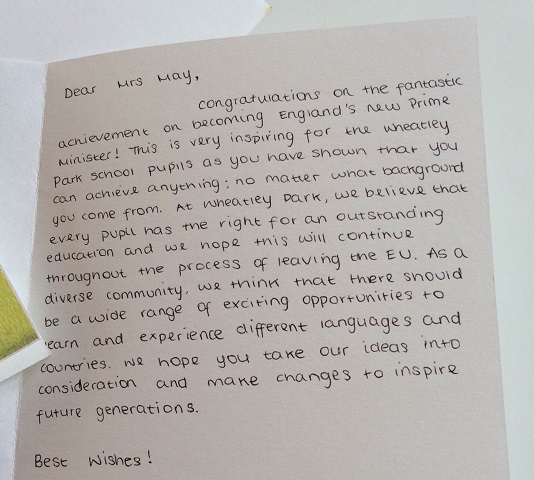 Dear Mrs May,
congratulations on the fantastic
achievement on becoming England's new Prime
Minister! This is very inspiring for the wheatley
Park school pupils as you have shown that you
can achieve anything; no matter what background
you come from. At Wheatley Park, we believe that
every pupil has the right for an outstanding
education and we hope this will continue
throughout the process of leaving the EU. As a
diverse community, we think that there should
be a wide range of exciting opportunities to
earn and experience different languages and
countries. We hope you take our ideas into
consideration and make changes to inspire
future generations.
Best Wishes!